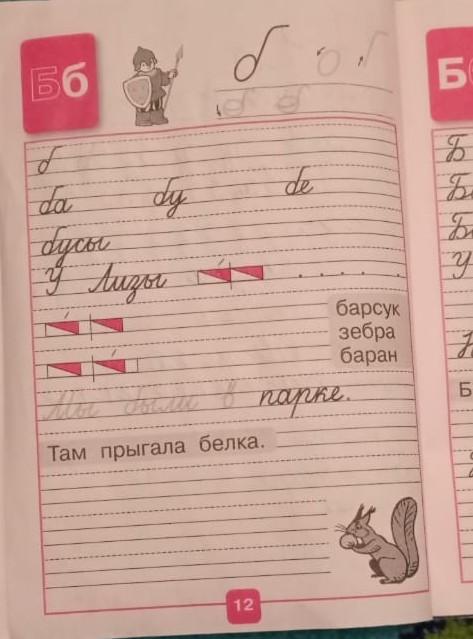 Бб
б
б
ба бу бе
бусы
У Лизы . . . . .
барсук
зебра
баран
Мы были в парке.
Там прыгала белка.
12
Б
Б
Б
Б
У
Б